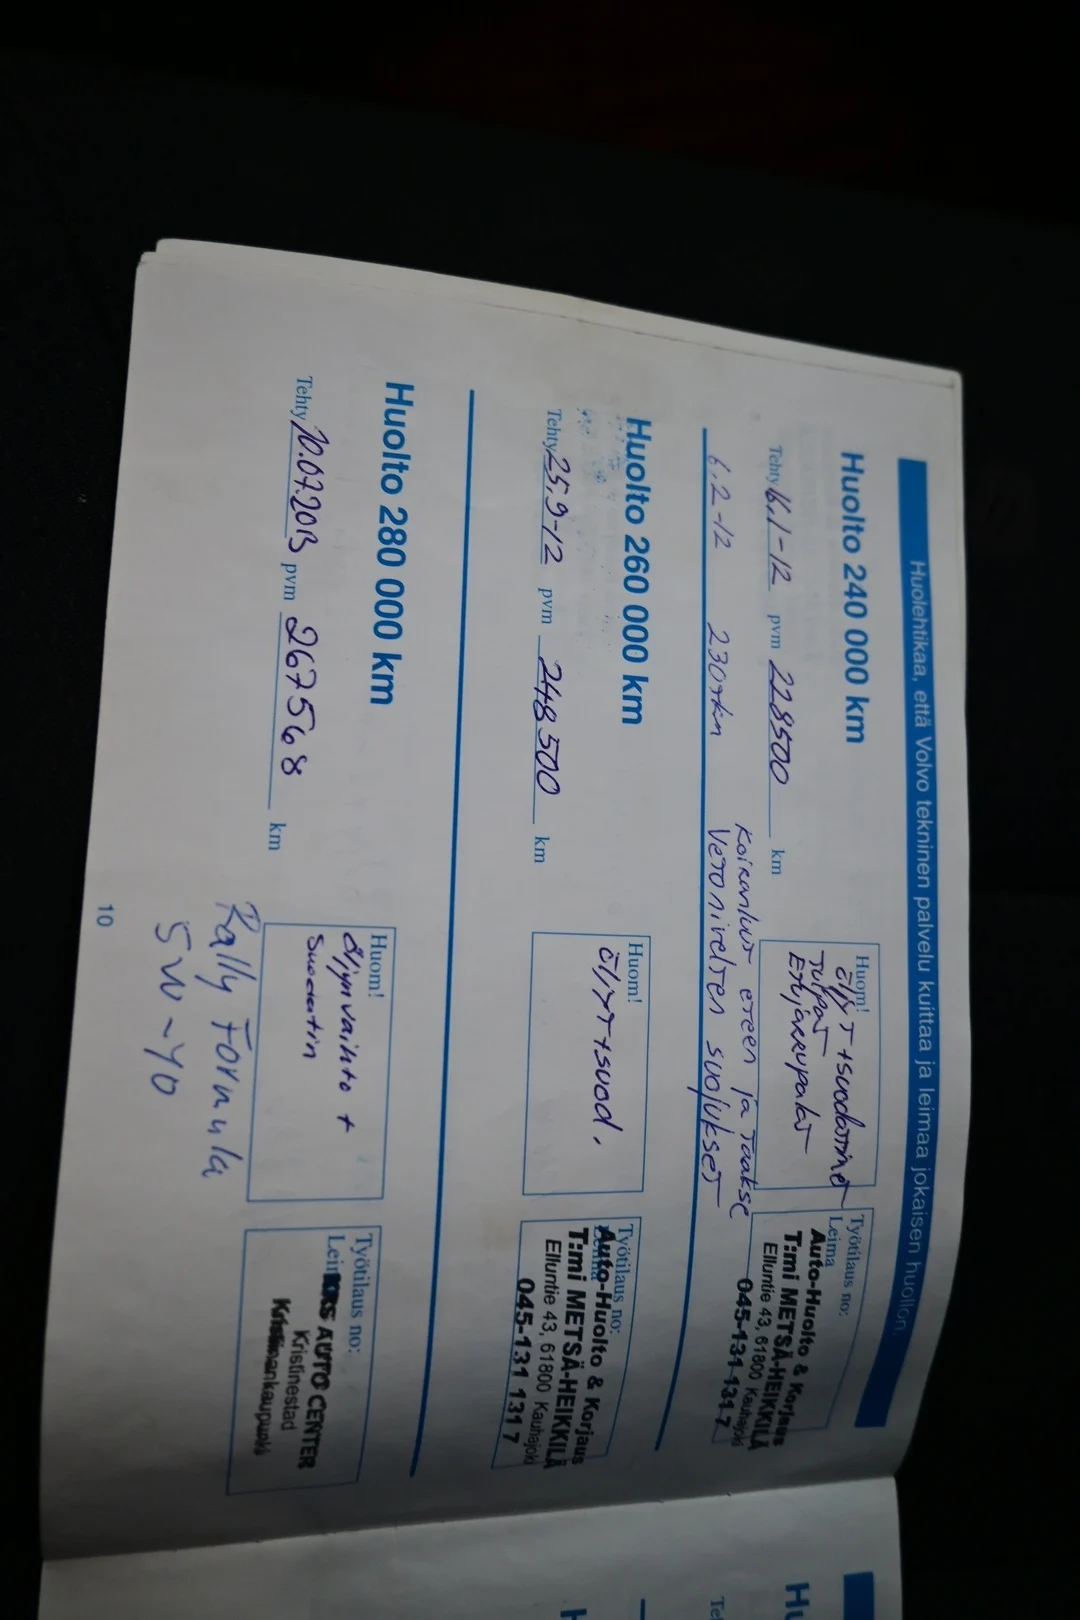 Huolehtikaa, että Volvo tekninen palvelu kuittaa ja leimaa jokaisen huollon.
Huolto 240 000 km
Tehty 16.1-12 pvm 228500 km
Huom!
öljyT + suodaTTimeT
TulpaT
ETujarrupalaT
Työtilaus no:
Leima
Auto-Huolto & Korjaus
T:mi METSÄ-HEIKKILÄ
Elluntie 43, 61800 Kauhajoki
045-131 131 7
Koiranluut eTeen ja Taakse
6.2-12 230Tkm VeTonivelTen suojukseT
Huolto 260 000 km
Tehty 25.9-12 pvm 248 500 km
Huom!
öljyT + suod.
Työtilaus no:
Auto-Huolto & Korjaus
T:mi METSÄ-HEIKKILÄ
Elluntie 43, 61800 Kauhajoki
045-131 131 7
Huolto 280 000 km
Tehty 10.07.2013 pvm 267568 km
Huom!
öljynvaihto +
Suodatin
Työtilaus no:
AUTO CENTER
Kristinestad
Kristiinankaupunki
Rally Formula
5W-40
10